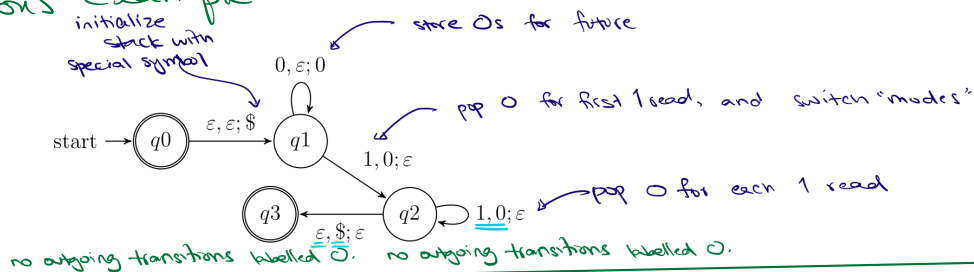 initialize
stack with
special symbol
store 0s for future
0, ε; 0
pop 0 for first 1 read, and switch "modes"
ε, ε; $
start
q0
q1
1, 0; ε
pop 0 for each 1 read
q3
q2
1, 0; ε
ε, $; ε
no outgoing transitions labelled 0.
no outgoing transitions labelled 0.